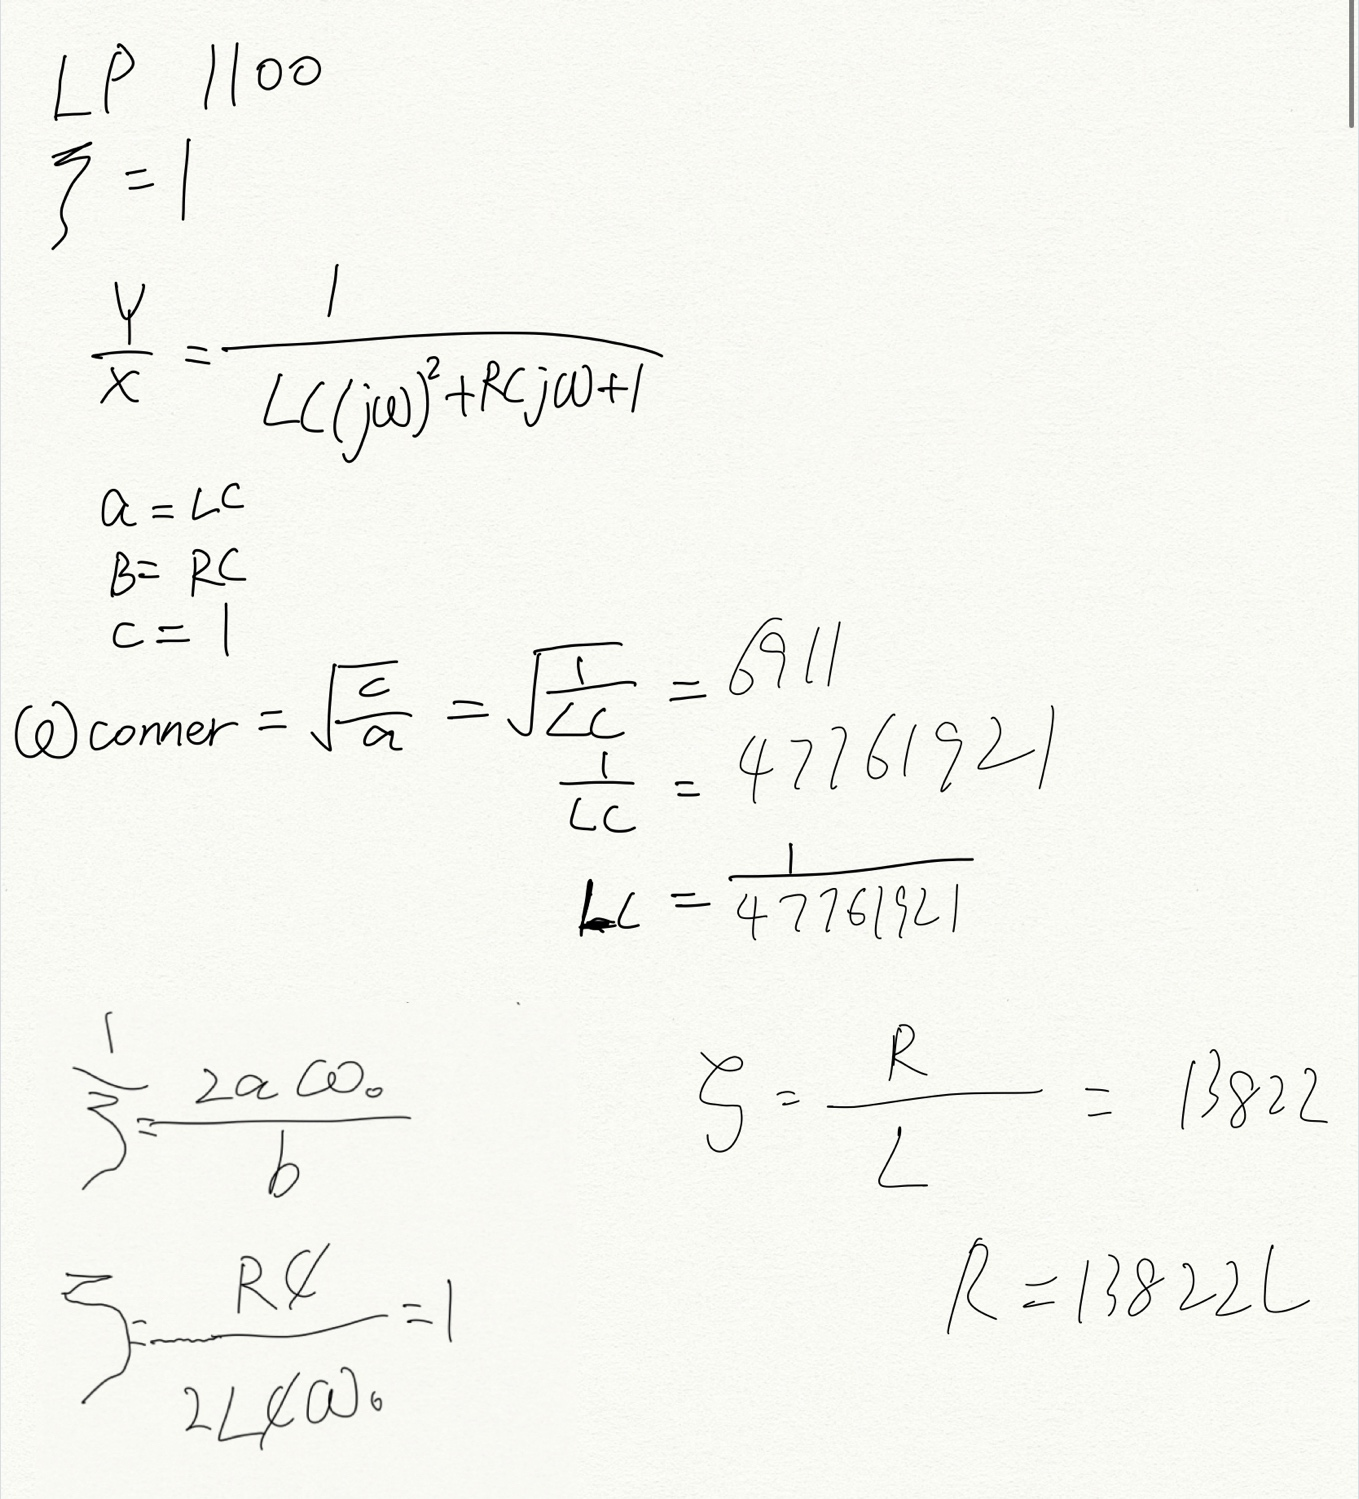 LP 1100
ζ = 1
Y/X = 1/(LC(jω)²+RCjω+1)
a = LC
B = RC
c = 1
ω conner = √(c/a) = √(1/LC) = 6911
1/LC = 47761921
LC = 1/47761921
1/ζ = 2aω₀/b
ζ = RC/2LCω₀ = 1
ζ = R/L = 13822
R = 13822L